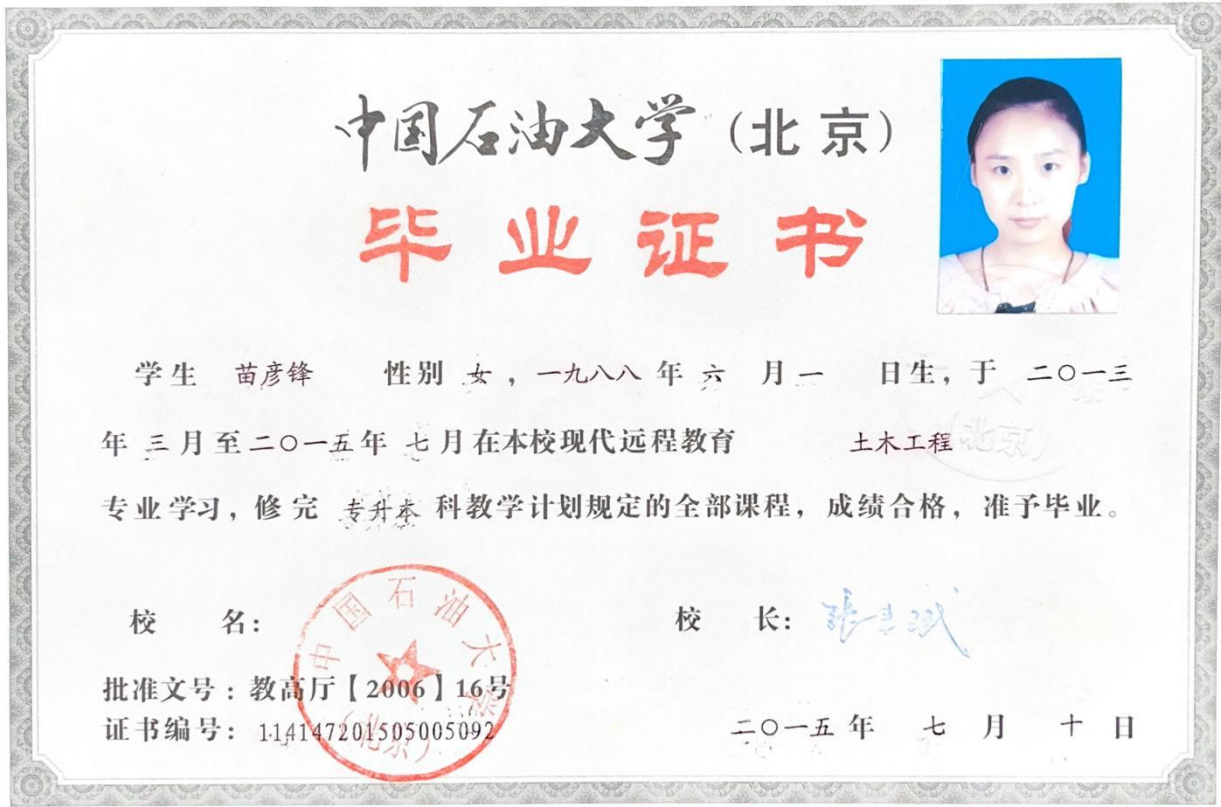 中国石油大学（北京）
毕业证书
学生 苗彦锋 性别 女，一九八八 年 六 月 一 日生，于 二〇一三
年 三 月至 二〇一五 年 七 月在本校现代远程教育 土木工程
专业学习，修完 专升本 科教学计划规定的全部课程，成绩合格，准予毕业。
校 名： 校 长：
中国石油大学（北京）
批准文号：教高厅【2006】16号
证书编号：114147201505005092
二〇一五 年 七 月 十 日
（北京）